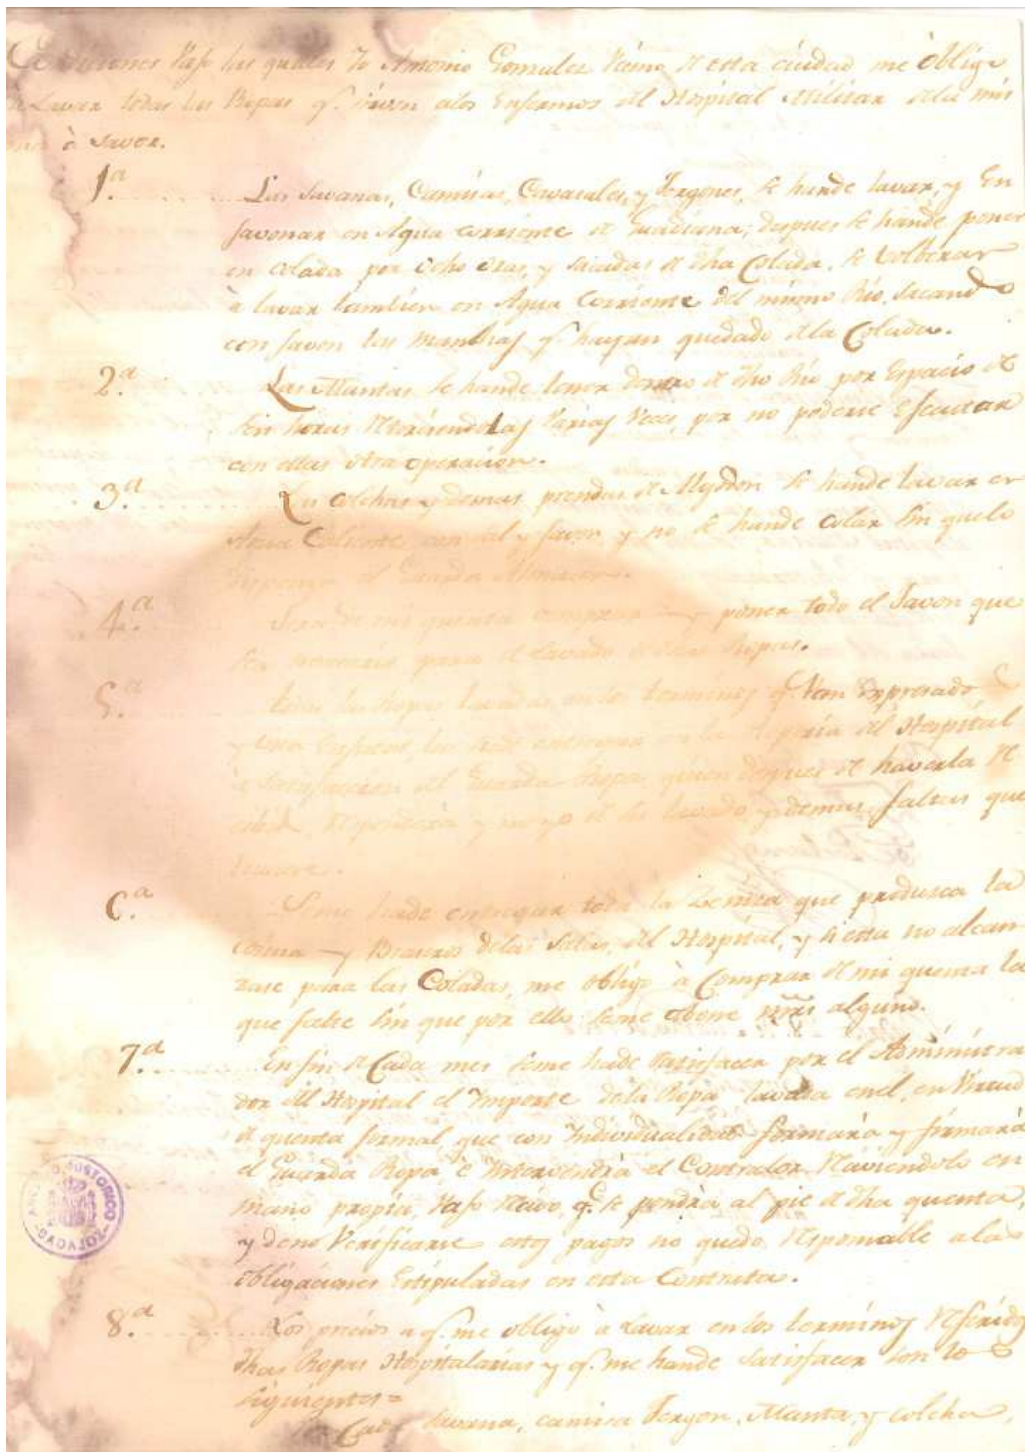 Condiciones vajo las quales Yo Antonio Gonzalez Vecino de esta ciudad me obligo
a Lavar todas las Ropas qe. sirven alos Enfermos del Hospital Militar dela mis
ma à saver.
1.a Las Savanas, Camisas, Cavezales, y Jergones, se hande lavar, y En
Javonar en Agua corriente de Guadiana; despues se hande poner
en colada por ocho oras, y sacadas de dha Colada, se bolberan
à lavar tambien en Agua Corriente del mismo Rio, sacando
con Javon las manchas qe. hayan quedado dela Colada.
2.a Las Mantas se hande tener dentro de dho Rio por Espacio de
seis horas retorciendolas varias veces, por no poderse efectuar
con ellas otra operacion.
3.a Las colchas y demas prendas de Algodon se hande lavar en
Agua Caliente con sal y Javon y no se hande colar sin quelo
disponga el Guarda Almacen.
4.a Sera de mi quenta comprar y poner todo el Javon que
sea necesario para el Lavado de dhas Ropas.
5.a Todas las Ropas lavadas en los terminos qe. ban expresados
y los hede entregar en la Roperia del Hospital
à satisfaccion del Guarda Ropa, quien despues de haverla re
cibido responderà y no yo de los lavado y demas faltas que
6.a Seme hade entregar toda la Zeniza que produzca la
Cocina y Braseros delas Salas del Hospital, y si esta no alcan
zase para las Coladas, me obligo à Comprar de mi quenta la
que falte sin que por ello seme abone mrs alguno.
7.a En fin de Cada mes seme hade satisfacer por el Administra
dor del Hospital el Importe dela Ropa lavada enel, en Virtud
de quenta formal que con Individualidad formarà y firmarà
el Guarda Ropa è Intervendrà el Contralor Reciviendolo en
mano propia, vajo recivo, qe. se pondrà al pie de dha quenta,
y deno Verificarse estos pagos no quedo responsable a las
obligaciones Estipuladas en esta Contrata.
8.a Los precios a qe. me obligo à Lavar en los terminos referidos
dhas Ropas Hospitalarias y qe. me hande satisfacer son los
siguientes=
Cada Savana, camisa Jergon, Manta, y colcha,
ARCHIVO HISTORICO